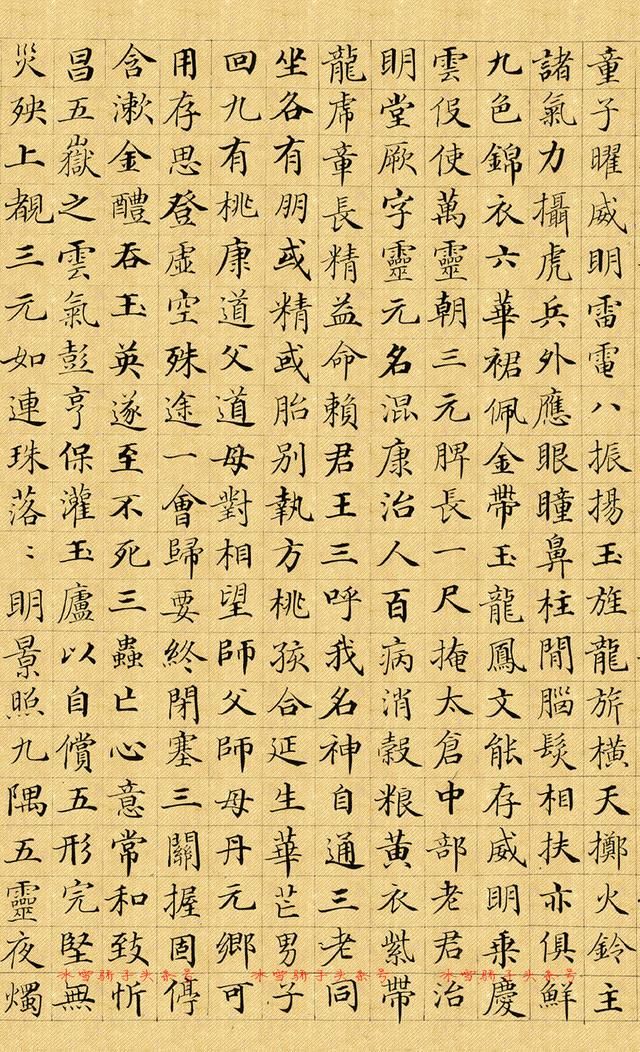 童子曜威明雷電八振揚玉旌龍旂橫天擲火鈴主
諸氣力攝虎兵外應眼瞳鼻柱間腦髮相扶亦俱鮮
九色錦衣六華裙佩金帶玉龍鳳文能存威明乘慶
雲伇使萬靈朝三元脾長一尺掩太倉中部老君治
明堂厥字靈元名混康治人百病消穀粮黃衣紫帶
龍虎章長精益命賴君王三呼我名神自通三老同
坐各有朋或精或胎別執方桃孩合延生華芒男子
回九有桃康道父道母對相望師父師母丹元鄉可
用存思登虛空殊途一會歸要終閉塞三關握固停
含漱金醴吞玉英遂至不死三蟲亡心意常和致忻
昌五嶽之雲氣彭亨保灌玉廬以自償五形完堅無
災殃上覩三元如連珠落〻明景照九隅五靈夜燭
冰雪骑手头条号
冰雪骑手头条号
冰雪骑手头条号